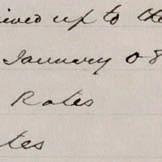 ived up to the
January 08
Rates
tes